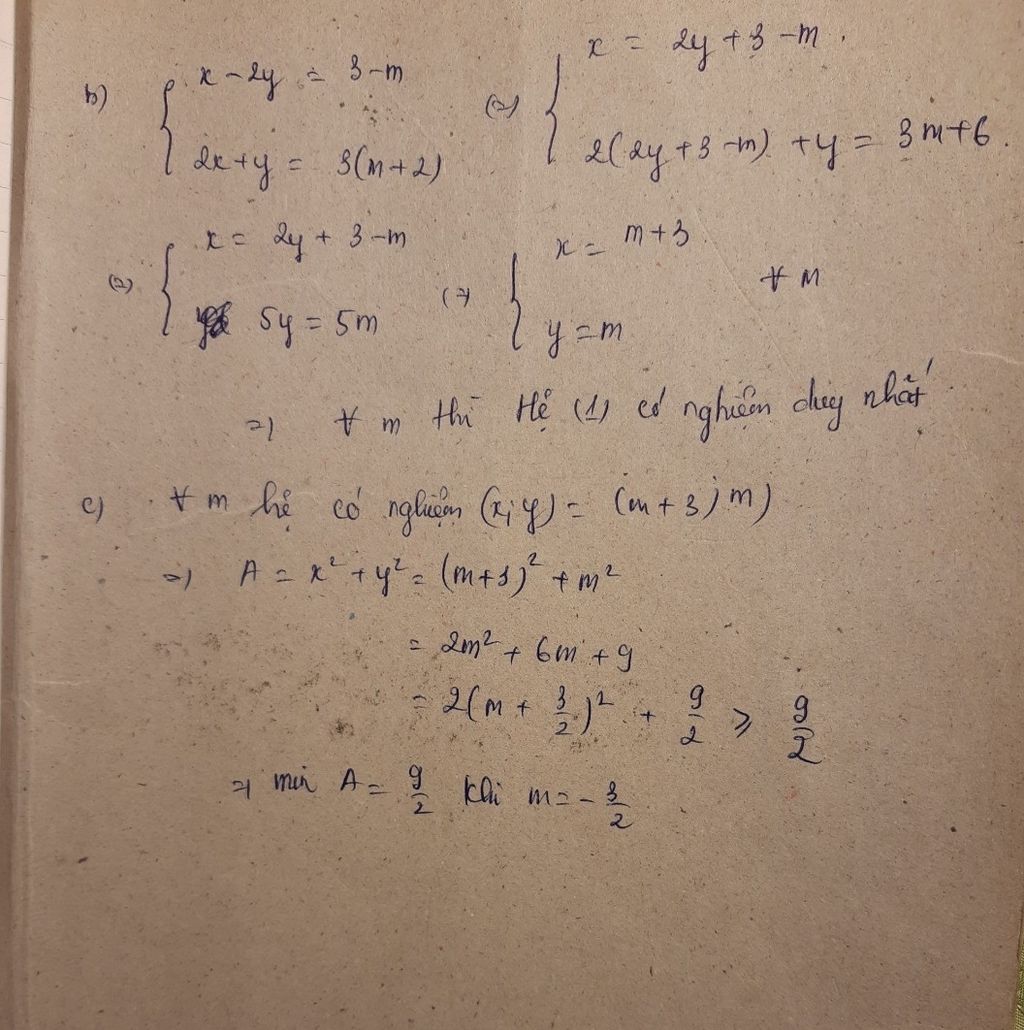 b) { x - 2y = 3 - m (=) { x = 2y + 3 - m .
2x + y = 3(m + 2) 2(2y + 3 - m) + y = 3m + 6 .
(=) { x = 2y + 3 - m (=) { x = m + 3 ∀ m
5y = 5m y = m
=) ∀ m thì Hệ (1) có nghiệm duy nhất
c) ∀ m hệ có nghiệm (x; y) = (m + 3; m)
=) A = x² + y² = (m + 3)² + m²
= 2m² + 6m + 9
= 2(m + 3/2)² + 9/2 ⩾ 9/2
=) min A = 9/2 khi m = - 3/2